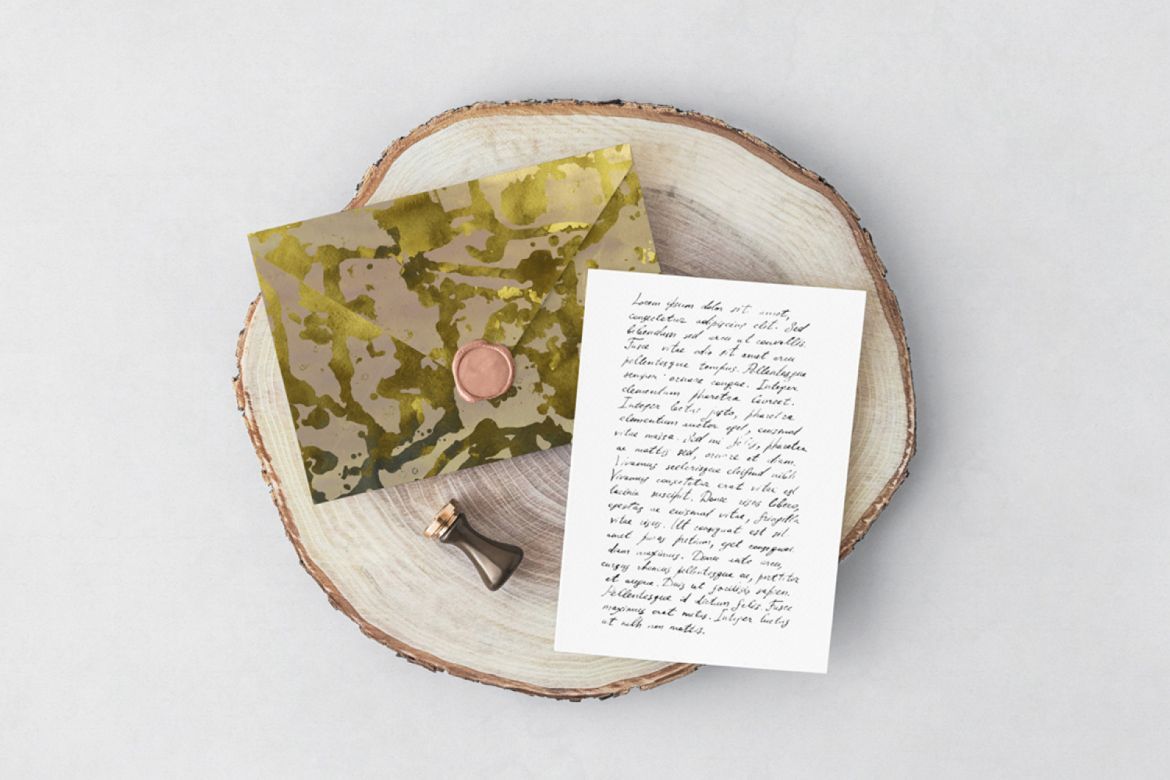 Lorem ipsum dolor sit amet,
consectetur adipiscing elit. Sed
bibendum sed arcu ut convallis.
Fusce vitae odio sit amet arcu
pellentesque tempus. Pellentesque
semper ornare congue. Integer
elementum pharetra laoreet.
Integer luctus justo, pharetra
elementum auctor eget, euismod
vitae massa. Sed mi felis, pharetra
ac mattis sed, ornare et diam.
Vivamus scelerisque eleifend nibh.
Vivamus consectetur erat vitae est
lacinia suscipit. Donec risus libero,
egestas ac euismod vitae, fringilla
vitae risus. Ut consequat est sit
amet purus pretium, eget consequat
diam maximus. Donec justo arcu,
cursus rhoncus pellentesque ac, porttitor
et augue. Duis ut facilisis sapien.
Pellentesque id dictum felis. Fusce
maximus erat metus. Integer luctus
ut nibh non mattis.